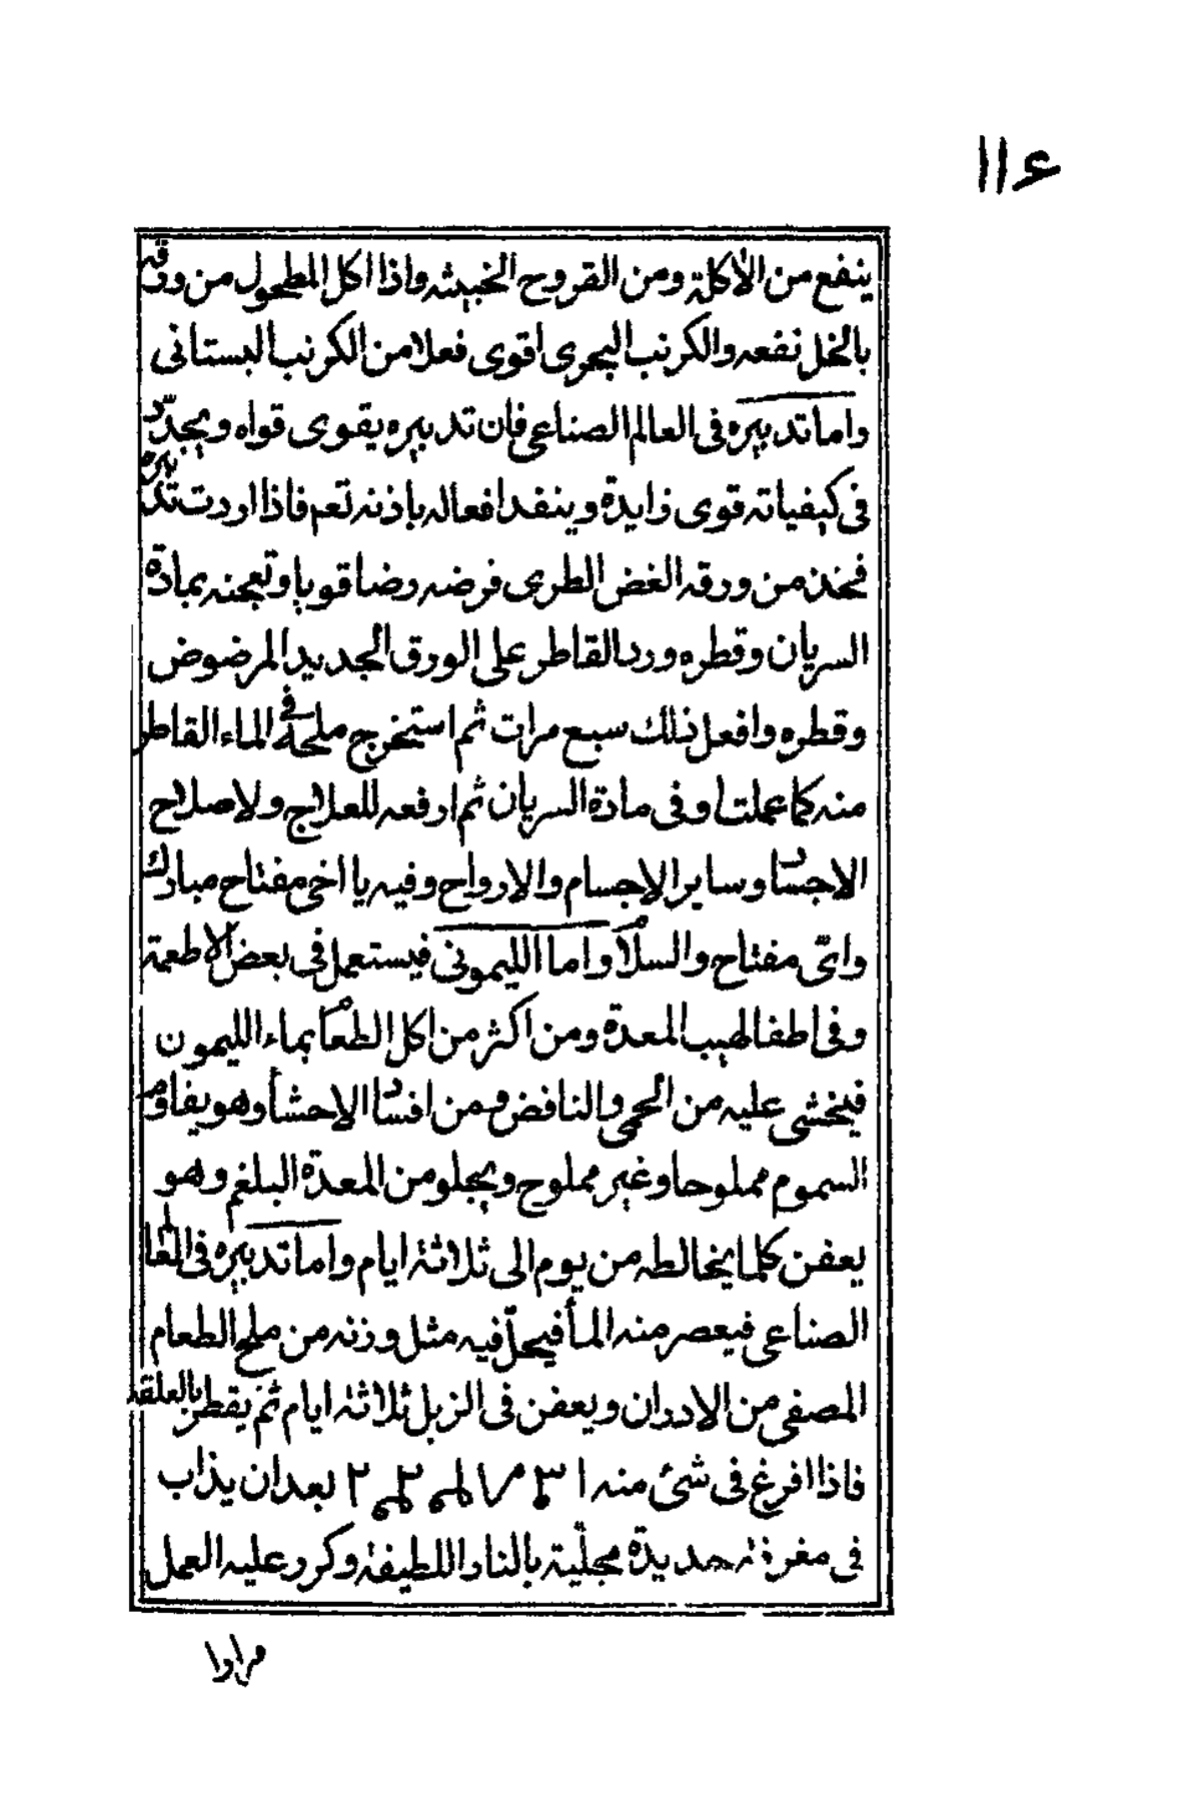 ١١٤
ينفع من الأكلة ومن القروح الخبيثه واذا اكل المطحول من ورقه
بالخل نفعه والكرنب البحرى اقوى فعلا من الكرنب البستانى
واما تدبيره فى العالم الصناعى فإن تدبيره يقوى قواه ويجدّد
فى كيفياته قوى زايدة وينفد افعاله باذنه تعم فاذا اردت تدبيره
فخذ من ورقه الغض الطرى فرضه رضا قويا وتعجنه بمادة
السريان وقطره ورد القاطر على الورق الجديد المرضوض
وقطره وافعل ذلك سبع مرات ثم استخرج ملحه فى الماء القاطر
منه كما عملت وفى مادة السريان ثم ارفعه للعلاج ولاصلاح
الاجساد وساير الاجسام والارواح وفيه يا اخى مفتاح مبارك
واىّ مفتاح والسلام واما الليمونى فيستعمل فى بعض الاطعمة
وفى اطفا لهيب المعدة ومن اكثر من اكل الطعام بماء الليمون
فيخشى عليه من الحمى والنافض ومن افساد الاحشأ وهو يقاوم
السموم مملوحا وغير مملوح ويجلو من المعدة البلغم وهو
يعفن كلما يخالطه من يوم الى ثلاثة ايام واما تدبيره فى العالم
الصناعى فيعصر منه المأ فيحلّ فيه مثل وزنه من ملح الطعام
المصفى من الادران ويعفن فى الزبل ثلاثة ايام ثم يقطر بالعلقه
فاذا افرغ فى شئ منه ا بعد ان يذاب
فى مغرفة حديدة مجليّة بالنار اللطيفة وكرر عليه العمل
مرارا